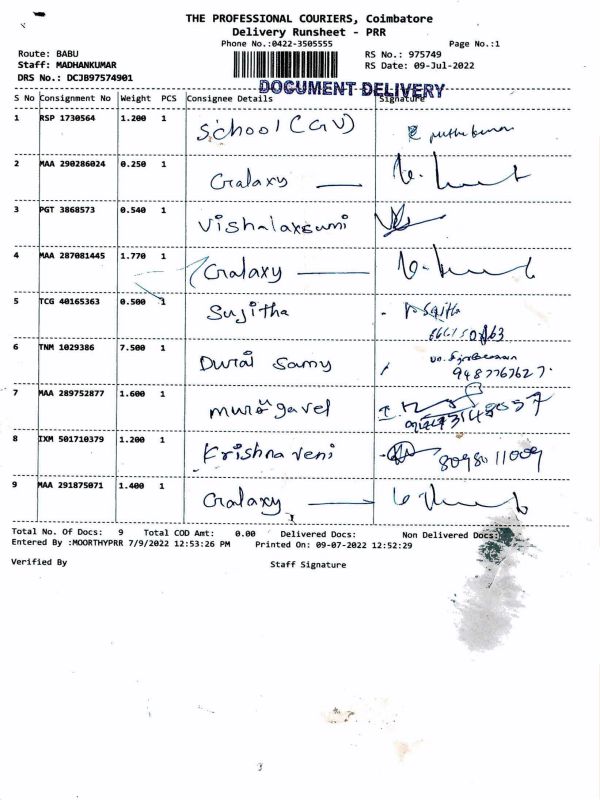 THE PROFESSIONAL COURIERS, Coimbatore
Delivery Runsheet - PRR
Phone No.:0422-3505555 Page No.:1
Route: BABU RS No.: 975749
Staff: MADHANKUMAR RS Date: 09-Jul-2022
DRS No.: DCJB97574901
DOCUMENT DELIVERY
S No Consignment No Weight PCS Consignee Details Signature
1 RSP 1730564 1.200 1 School (GV)
2 MAA 290286024 0.250 1 Galaxy
3 PGT 3868573 0.540 1 Vishalaxsumi
4 MAA 287081445 1.770 1 Galaxy
5 TCG 40165363 0.500 1 Sujitha
6 TNM 1029386 7.500 1 Durai Samy
9487767627
7 MAA 289752877 1.600 1 murugavel
8 IXM 501710379 1.200 1 Krishnaveni 8098011009
9 MAA 291875071 1.400 1 Galaxy
Total No. Of Docs: 9 Total COD Amt: 0.00 Delivered Docs: Non Delivered Docs:
Entered By :MOORTHYPRR 7/9/2022 12:53:26 PM Printed On: 09-07-2022 12:52:29
Verified By Staff Signature